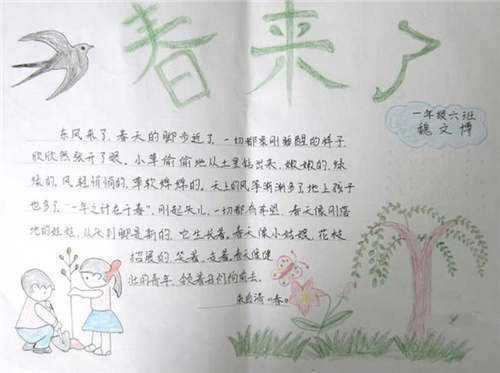 春来了
一年级六班
魏文博
东风来了,春天的脚步近了,一切都象刚睡醒的样子,
欣欣然张开了眼。小草偷偷地从土里钻出来,嫩嫩的,绿
绿的,风轻悄悄的,草软绵绵的。天上的风筝渐渐多了,地上孩子
也多了。“一年之计在于春”,刚起头儿,一切都有希望。春天像刚落
地的娃娃,从头到脚是新的,它生长着。春天像小姑娘,花枝
招展的,笑着,走着。春天像健
壮的青年,领着我们向前去。
朱自清《春》